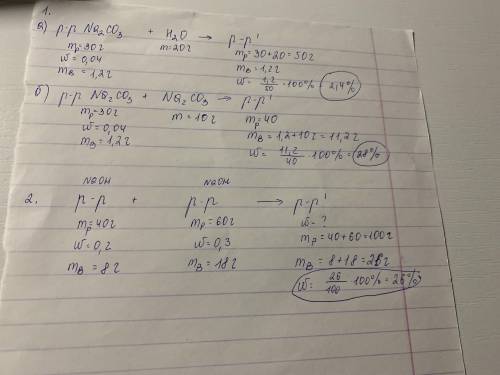 1.
а) р-р Na₂CO₃ + H₂O → р-р'
mр=30г m=20г mр=30+20=50г
w=0,04 mв=1,2г
mв=1,2г w= 1,2/50 · 100%= 2,4%
б) р-р Na₂CO₃ + Na₂CO₃ → р-р'
mр=30г m=10г mр=40
w=0,04 mв=1,2+10г=11,2г
mв=1,2г w= 11,2/40 · 100%=28%
NaOH NaOH
2. р-р + р-р → р-р'
mр=40г mр=60г w-?
w=0,2 w=0,3 mр=40+60=100г
mв=8г mв=18г mв=8+18=26г
w= 26/100 · 100%=26%